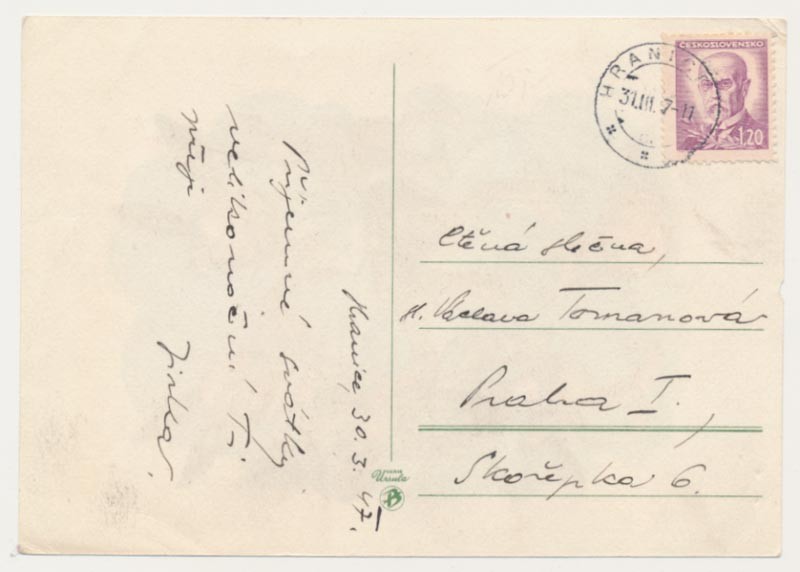 Hranice, 30. 3. 47.
Příjemné svátky
velikonoční Ti
přeje
Jirka
ČESKOSLOVENSKO
1.20
HRANICE
31.III.47-11
Ctěná slečna,
Václava Tomanová
Praha I.,
Skořepka 6.
Ursula